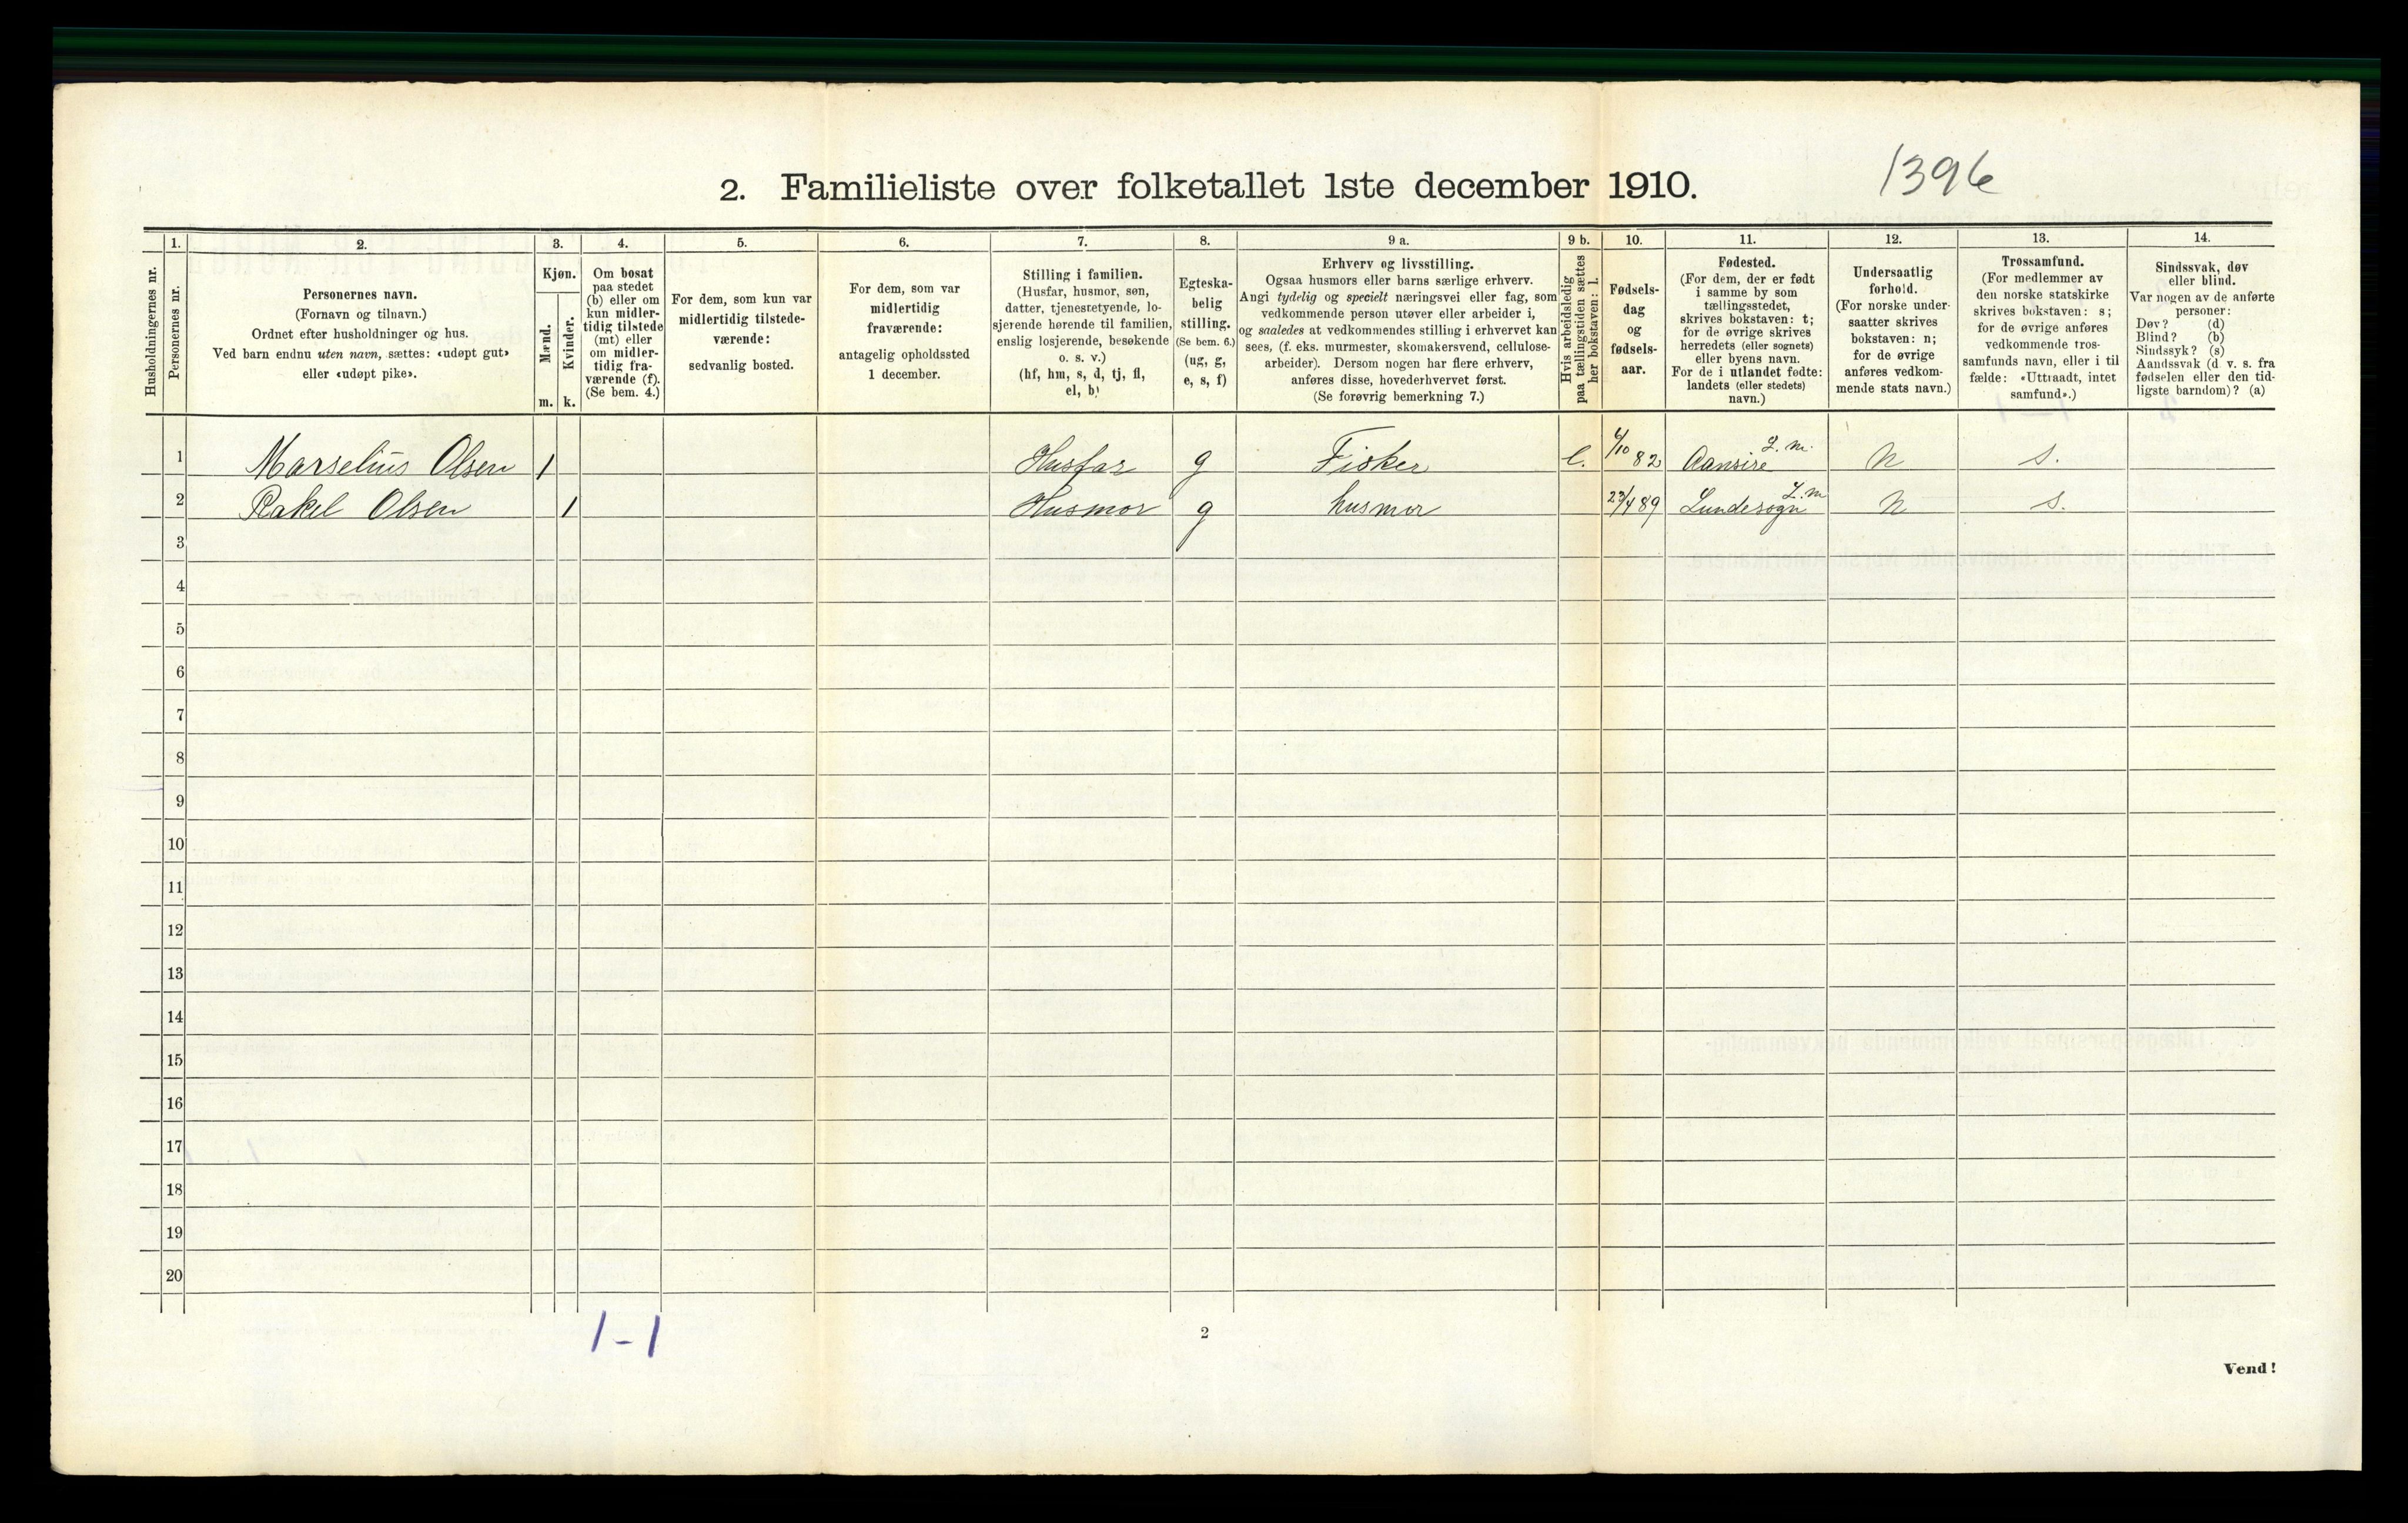 2. Familieliste over folketallet 1ste december 1910.
1396
Husholdningernes nr.
1.
Personernes nr.
2.
Personernes navn.
(Fornavn og tilnavn.)
Ordnet efter husholdninger og hus.
Ved barn endnu uten navn, sættes: «udøpt gut»
eller «udøpt pike».
3.
Kjøn.
Mænd.
Kvinder.
m. k.
4.
Om bosat
paa stedet
(b) eller om
kun midler-
tidig tilstede
(mt) eller
om midler-
tidig fra-
værende (f).
(Se bem. 4.)
5.
For dem, som kun var
midlertidig tilstede-
værende:
sedvanlig bosted.
6.
For dem, som var
midlertidig
fraværende:
antagelig opholdssted
1 december.
7.
Stilling i familien.
(Husfar, husmor, søn,
datter, tjenestetyende, lo-
sjerende hørende til familien,
enslig losjerende, besøkende
o. s. v.)
(hf, hm, s, d, tj, fl,
el, b)
8.
Egteska-
belig
stilling.
(Se bem. 6.)
(ug, g,
e, s, f)
9 a.
Erhverv og livsstilling.
Ogsaa husmors eller barns særlige erhverv.
Angi tydelig og specielt næringsvei eller fag, som
vedkommende person utøver eller arbeider i,
og saaledes at vedkommendes stilling i erhvervet kan
sees, (f. eks. murmester, skomakersvend, cellulose-
arbeider). Dersom nogen har flere erhverv,
anføres disse, hovederhvervet først.
(Se forøvrig bemerkning 7.)
9 b.
Hvis arbeidsledig
paa tællingstiden sættes
her bokstaven: l.
10.
Fødsels-
dag
og
fødsels-
aar.
11.
Fødested.
(For dem, der er født
i samme by som
tællingsstedet,
skrives bokstaven: t;
for de øvrige skrives
herredets (eller sognets)
eller byens navn.
For de i utlandet fødte:
landets (eller stedets)
navn.)
12.
Undersaatlig
forhold.
(For norske under-
saatter skrives
bokstaven: n;
for de øvrige
anføres vedkom-
mende stats navn.)
13.
Trossamfund.
(For medlemmer av
den norske statskirke
skrives bokstaven: s;
for de øvrige anføres
vedkommende tros-
samfunds navn, eller i til
fælde: «Uttraadt, intet
samfund».)
14.
Sindssvak, døv
eller blind.
Var nogen av de anførte
personer:
Døv? (d)
Blind? (b)
Sindssyk? (s)
Aandssvak (d. v. s. fra
fødselen eller den tid-
ligste barndom)? (a)
1 Marselius Olsen 1 Husfar g Fisker l. 6/10 82 Aansire L. m. N s.
2 Rakel Olsen 1 Husmor g husmor 23/4 89 Lundesogn L. m N s.
3
4
5
6
7
8
9
10
11
12
13
14
15
16
17
18
19
20
1-1
2
Vend!